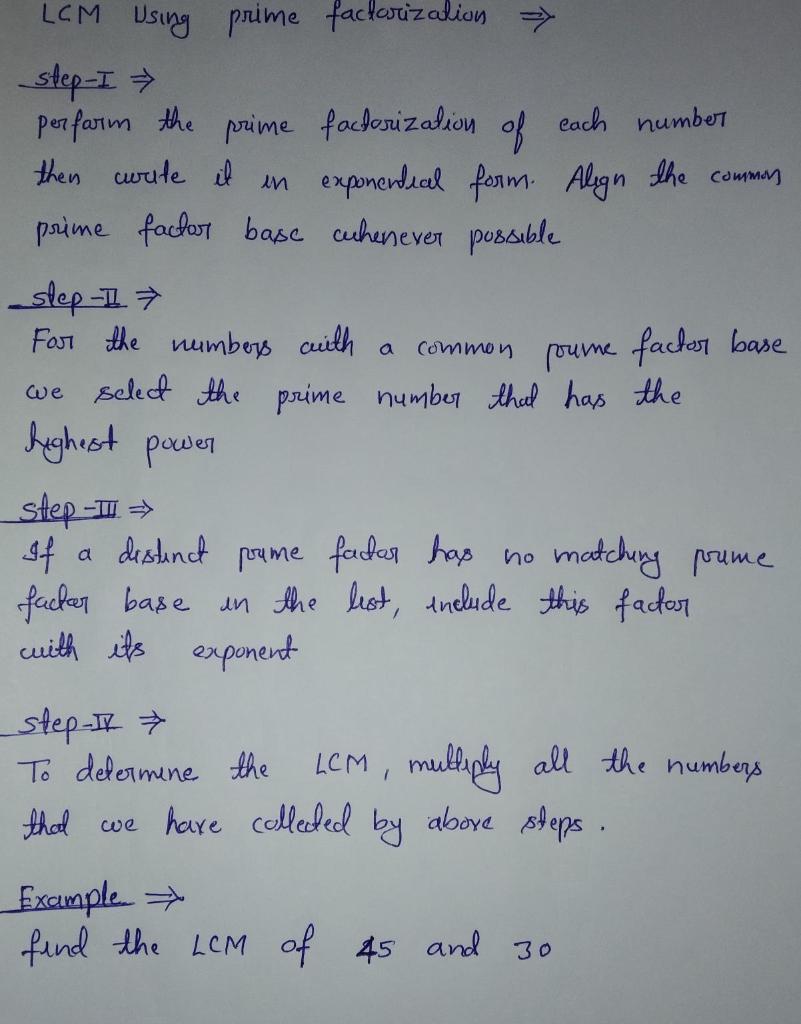 LCM Using prime factorization ⇒
step-I ⇒
perform the prime factorization of each number
then write it in exponential form. Align the common
prime factor base whenever possible
step-II ⇒
For the numbers with a common prime factor base
we select the prime number that has the
highest power
step-III ⇒
If a distinct prime factor has no matching prime
factor base in the list, include this factor
with its exponent
step-IV ⇒
To determine the LCM, multiply all the numbers
that we have collected by above steps.
Example ⇒
find the LCM of 45 and 30